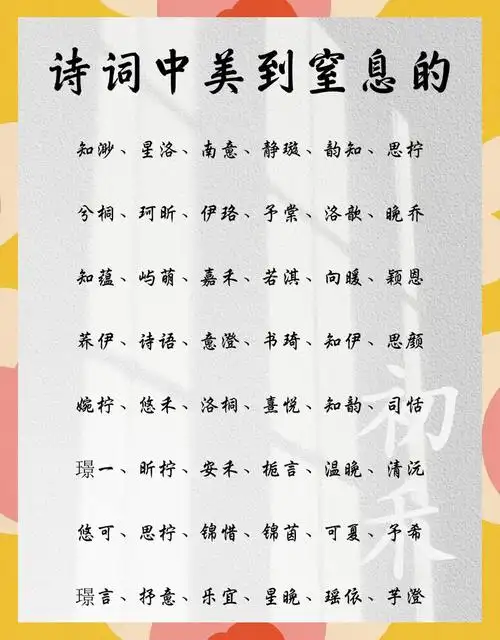 诗词中美到窒息的
知渺、星洛、南意、静璇、韵知、思柠
兮桐、珂昕、伊珞、予棠、洛歆、晚乔
知蕴、屿萌、嘉禾、若淇、向暖、颖恩
荞伊、诗语、意澄、书琦、知伊、思颜
婉柠、悠禾、洛桐、熹悦、知韵、司恬
璟一、昕柠、安禾、栀言、温晚、清沅
悠可、思柠、锦惜、锦茵、可夏、予希
璟言、抒意、乐宜、星晚、瑶依、芋澄
初禾